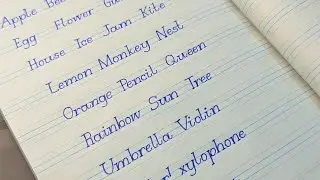 Apple
Egg Flower
House Ice Jam Kite
Lemon Monkey Nest
Orange Pencil Queen
Rainbow Sun Tree
Umbrella Violin
xylophone